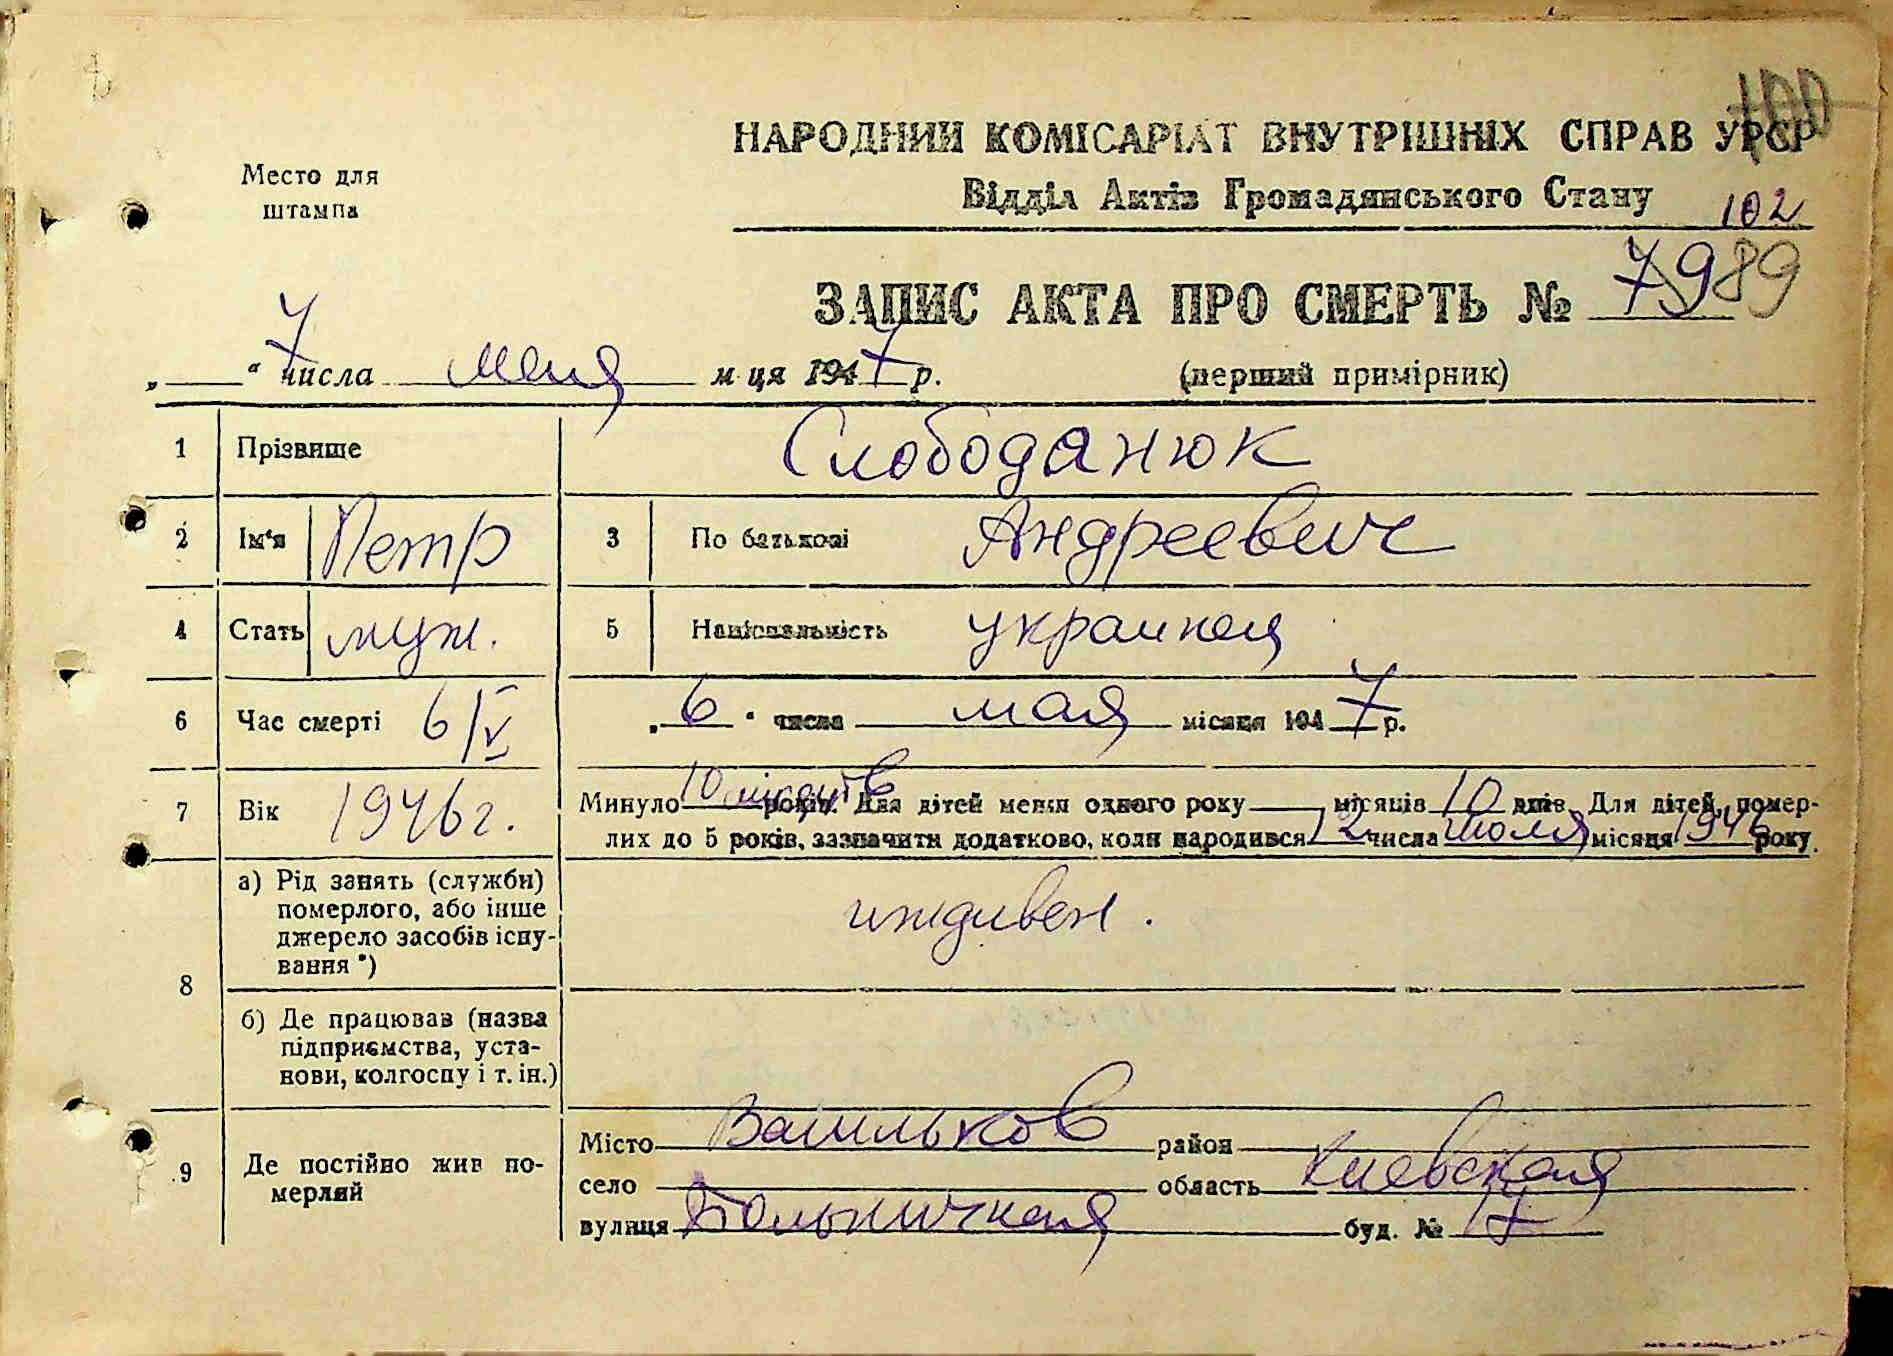 100
НАРОДНИЙ КОМІСАРІАТ ВНУТРІШНІХ СПРАВ УРСР
Место для
штампа
Відділ Актів Громадянського Стану
102
ЗАПИС АКТА ПРО СМЕРТЬ № 79 89
„ 7 “ числа мая м-ця 1947 р. (перший примірник)
1 Прізвище Слободанюк
2 Ім'я Петр 3 По батькові Андреевич
4 Стать муж. 5 Національність украинец
6 Час смерті 6/V „ 6 “ числа мая місяця 1947 р.
7 Вік 1946 г. Минуло 10 років. Для дітей менш одного року місяців 10 днів. Для дітей, помер-
лих до 5 років, зазначити додатково, коли народився 12 числа июля місяця 1946 року.
8 а) Рід занять (служби)
померлого, або інше
джерело засобів існу-
вання *)
иждивен.
б) Де працював (назва
підприємства, уста-
нови, колгоспу і т. ін.)
9 Де постійно жив по-
мерлий
Місто Васильков район
село область Киевская
вулиця Больничная буд. № 17